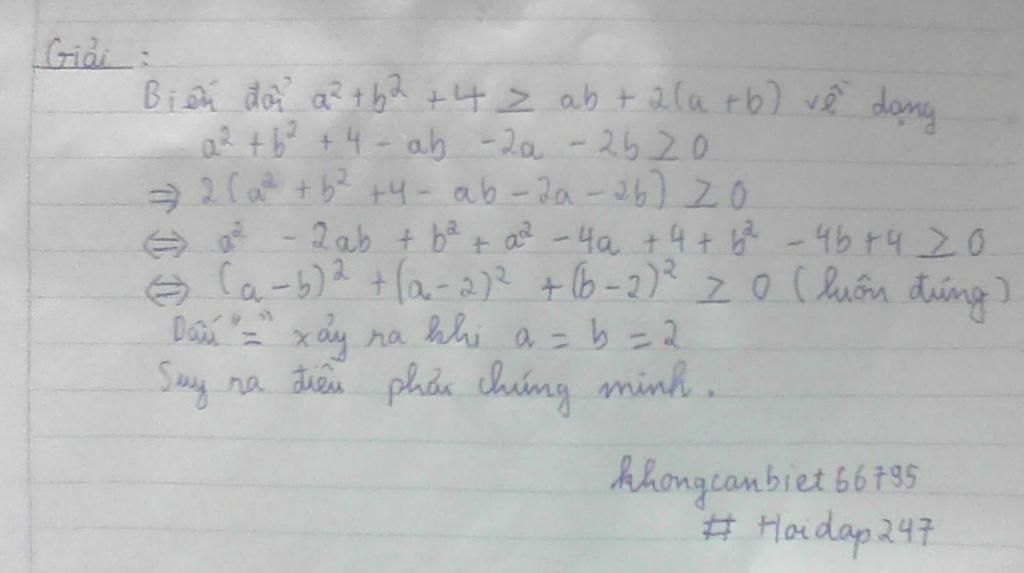 Giải :
Biến đổi a² + b² + 4 ≥ ab + 2(a + b) về dạng
a² + b² + 4 - ab - 2a - 2b ≥ 0
⇒ 2(a² + b² + 4 - ab - 2a - 2b) ≥ 0
⇔ a² - 2ab + b² + a² - 4a + 4 + b² - 4b + 4 ≥ 0
⇔ (a - b)² + (a - 2)² + (b - 2)² ≥ 0 (luôn đúng)
Dấu "=" xảy ra khi a = b = 2
Suy ra điều phải chứng minh.
khongcanbiet66795
# Hoidap247